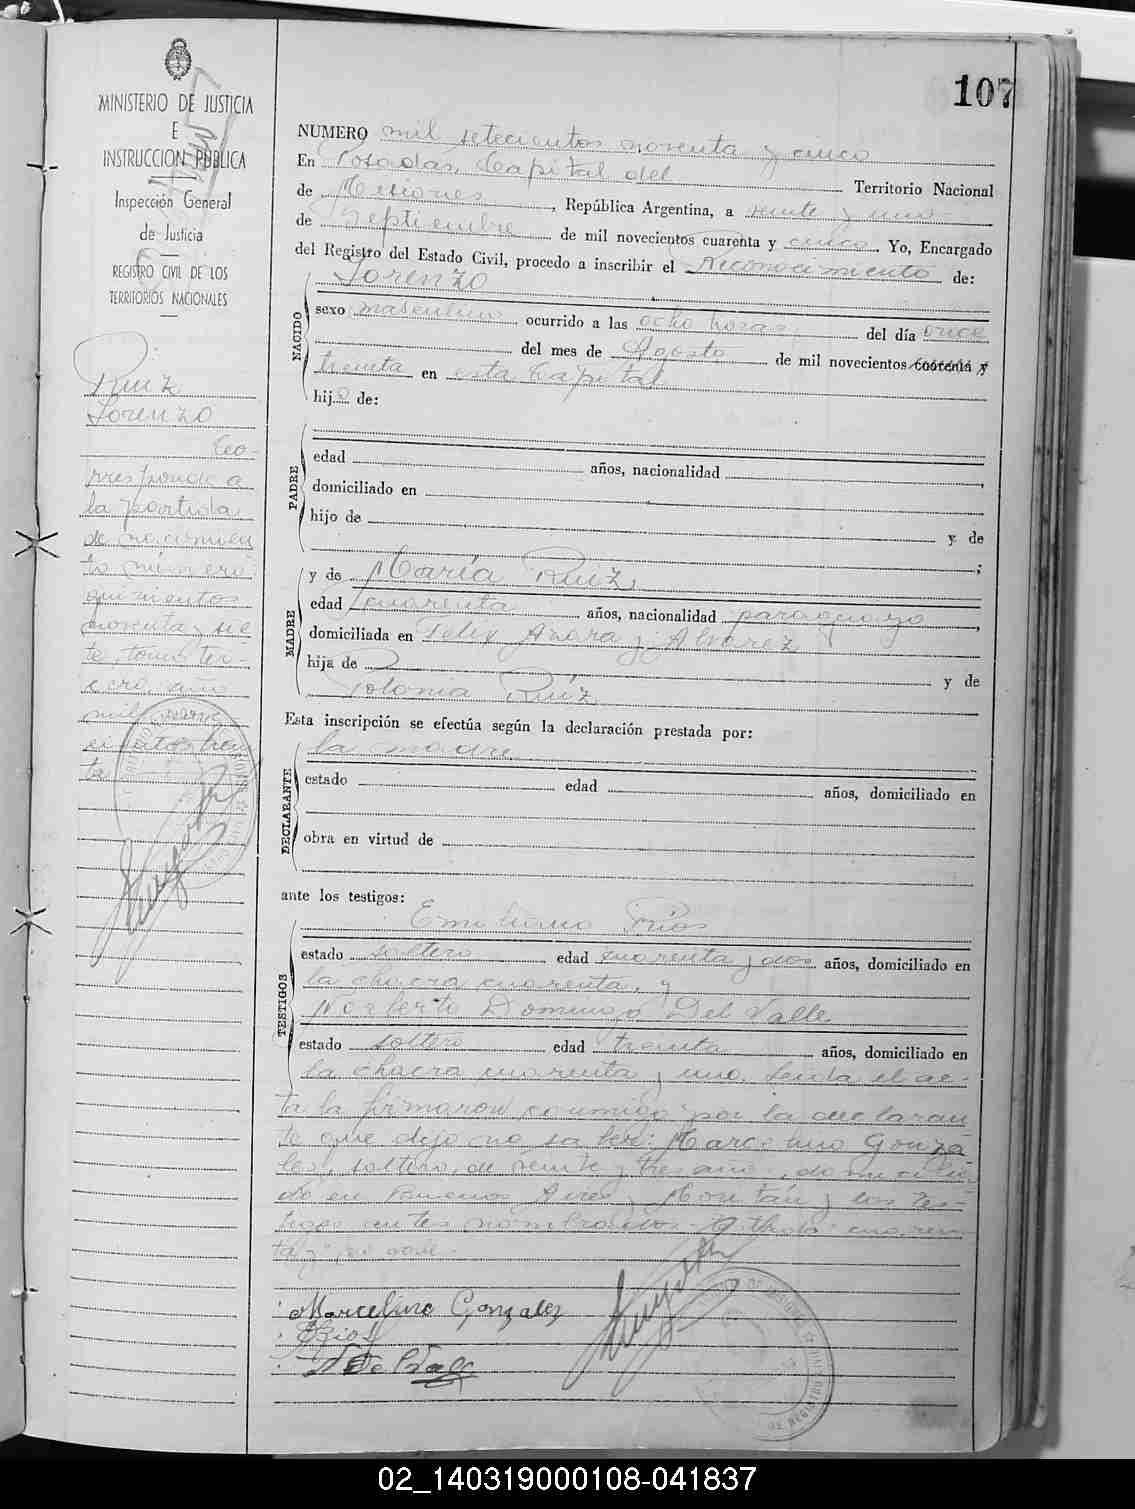 107
MINISTERIO DE JUSTICIA
E
INSTRUCCION PUBLICA
Inspección General
de Justicia
REGISTRO CIVIL DE LOS
TERRITORIOS NACIONALES
Ruiz
Lorenzo
Co-
rresponde a
la partida
de nacimien
to número
quinientos
noventa y sie
te, tomo ter-
cero, año
mil nove
cientos trein
ta
NUMERO mil setecientos noventa y cinco
En Posadas, Capital del Territorio Nacional
de Misiones, República Argentina, a veinte y uno
de Septiembre de mil novecientos cuarenta y cinco. Yo, Encargado
del Registro del Estado Civil, procedo a inscribir el Reconocimiento de:
Lorenzo
NACIDO
sexo masculino ocurrido a las ocho horas del día once
del mes de Agosto de mil novecientos cuarenta y
treinta en esta Capital
hijo de:
PADRE
edad años, nacionalidad
domiciliado en
hijo de y de
;
MADRE
y de María Ruiz,
edad cuarenta años, nacionalidad paraguaya,
domiciliada en Felix Azara y Alvarez
hija de y de
Polonia Ruíz
Esta inscripción se efectúa según la declaración prestada por:
DECLARANTE
la madre
estado edad años, domiciliado en
obra en virtud de
ante los testigos:
TESTIGOS
Emiliano Ríos
estado soltero edad cuarenta y dos años, domiciliado en
la chacra cuarenta, y
Norberto Domingo Del Valle
estado soltero edad treinta años, domiciliado en
la chacra cuarenta y uno. Leida el ac-
ta la firmaron conmigo por la declaran
te que dijo no saber: Marcelino Gonzá
les, soltero, de veinte y tres años, domicilia
do en Buenos Aires y Montán y los tes-
tigos antes nombrados. Testado: cuaren
ta y: no vale.
Marcelino Gonzalez
ERios
N D del Valle
02_140319000108-041837